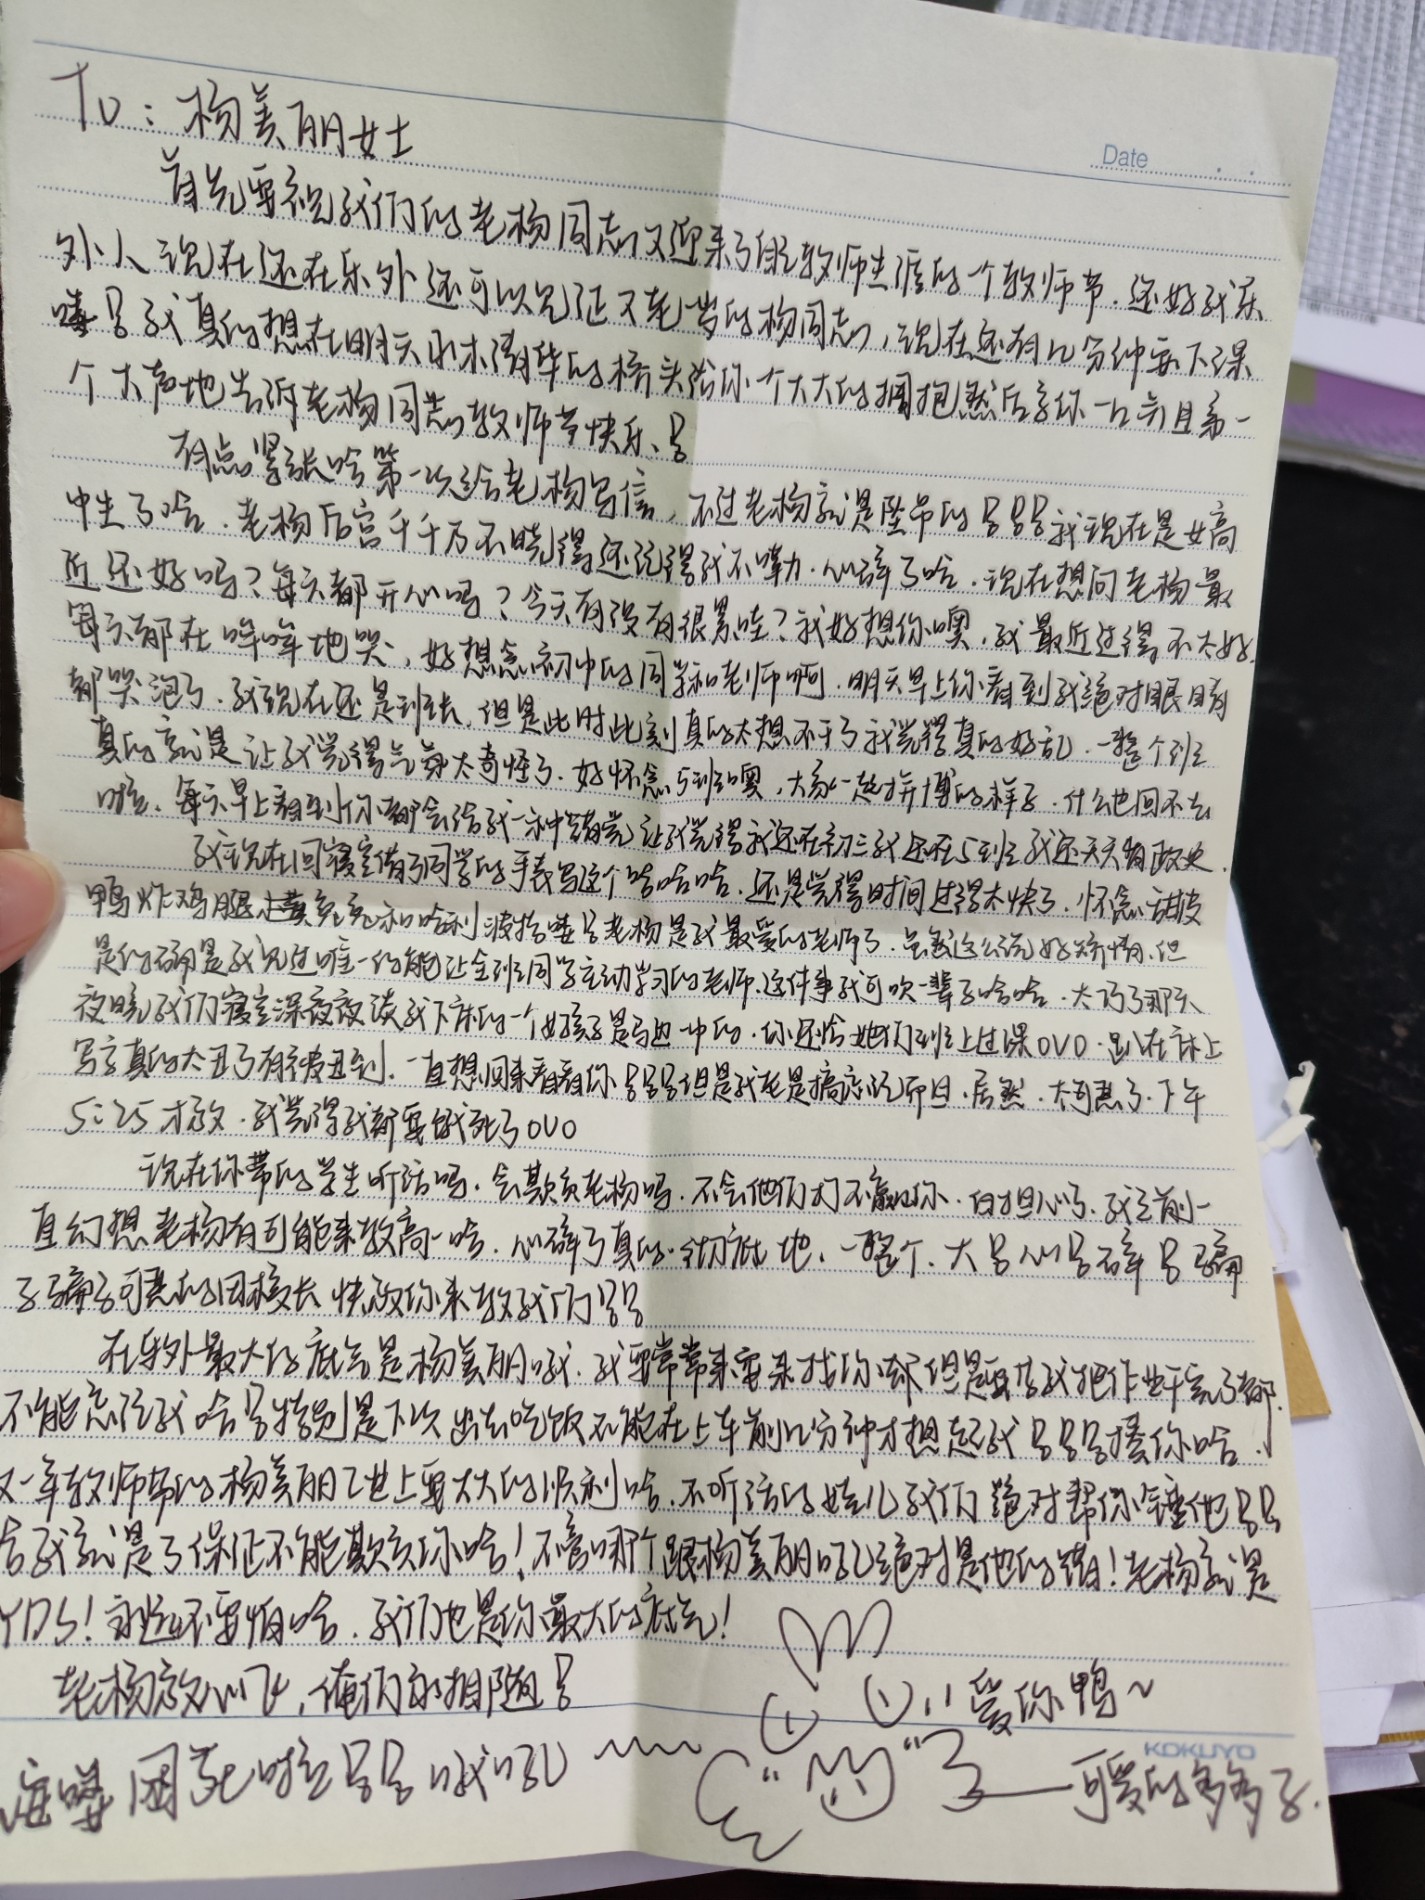 To：杨美丽女士
Date
首先要祝我们的老杨同志又迎来了自己教师生涯的一个教师节，还好我乐
外人现在还在乐外还可以见证又老一岁的杨同志，现在还有几分钟要下课
我真的想在明天水木清华的桥头给你一个大大的拥抱然后亲你一口并且第一
个大声地告诉老杨同志教师节快乐、
有点紧张哈第一次给老杨写信，不过老杨就是坠吊的 我现在是女高
中生了哈．老杨后宫千千万不晓得还记得我不嘛．心碎了哈．现在想问老杨最
近还好吗？每天都开心吗？今天有没有很累哇？我好想你噢．我最近过得不太好，
每天都在哞哞地哭，好想念初中的同学和老师啊．明天早上你看到我绝对眼睛
都哭泡了．我现在还是班长．但是此时此刻真的太想不干了我觉得真的好乱．一整个班
真的就是让我觉得气氛太奇怪了．好怀念5班噢，大家一起拼搏的样子．什么也回不去
啦．每天早上看到你都会给我一种错觉让我觉得我还在初三我还在5班我还天天有政史．
我现在回寝室借了同学的手表写这个哈哈哈．还是觉得时间过得太快了．怀念甜皮
鸭炸鸡腿 和哈利波特 老杨是我最爱的老师了．虽然这么说好矫情．但
是的确是我见过唯一的能让全班同学主动学习的老师．这件事我可吹一辈子哈哈．太巧了那天
夜晚我们寝室深夜夜谈我下床的一个女孩子是马边中的．你还给她们班上过课OVO．趴在床上
写字真的太丑了有被丑到．一直想回来看看你 但是我老是搞忘记而且．居然．太可恶了．下午
5:25才放．我觉得我都要饿死了OVO
现在你带的学生听话吗．会欺负老杨吗．不会他们打不赢你．白担心了．我之前一
直幻想老杨有可能来教高一哈．心碎了真的．彻底地．一整个．大 心 碎 骗
子骗子可恶的田校长快放你来教我们
在乐外最大的底气是杨美丽哦．我要常常来要来找你 但是要等我把作业干完了都．
不能忘记我哈 特别是下次出去吃饭不能在上车前几分钟才想起我 揍你哈．
又一年教师节的杨美丽工作上要大大的顺利哈．不听话的娃儿我们绝对帮你锤他
含我就是了保证不能欺负你哈！不管哪个跟杨美丽 绝对是他的错！老杨就是
YDS！永远不要怕哈．我们也是你最大的底气！
老杨放心飞，俺们永相随
爱你鸭~
困死啦
KOKUYO
——可爱的多多子．